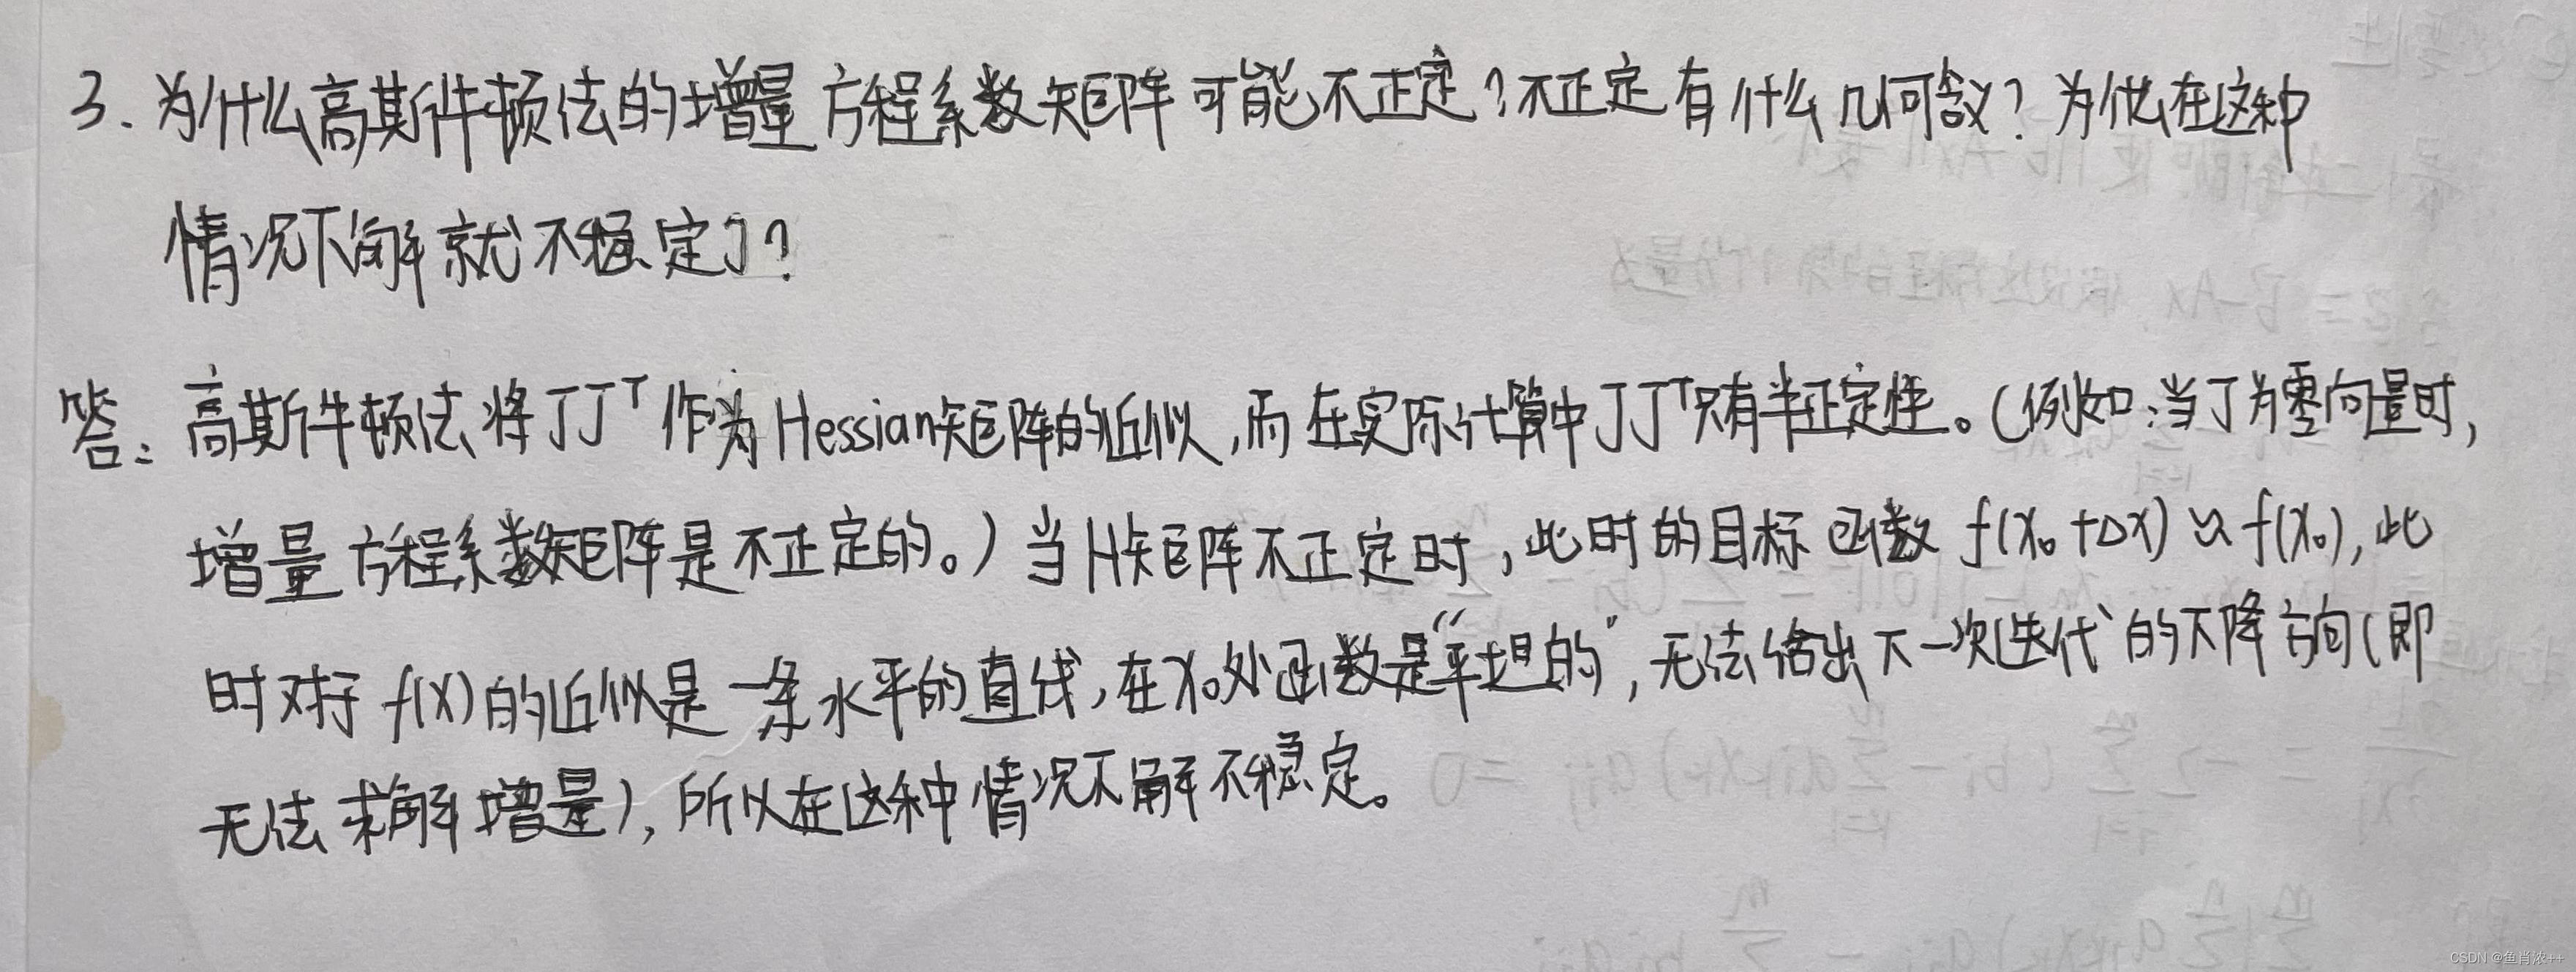 3. 为什么高斯牛顿法的增量方程系数矩阵可能不正定?不正定有什么几何含义?为什么在这种
情况下解就不稳定了?
答: 高斯牛顿法将JJᵀ作为Hessian矩阵的近似,而在实际计算中JJᵀ只有半正定性。(例如:当J为零向量时,
增量方程系数矩阵是不正定的。)当H矩阵不正定时,此时的目标函数f(x₀+Δx)≈f(x₀),此
时对于f(x)的近似是一条水平的直线,在x₀处函数是“平坦的”,无法给出下一次迭代的下降方向(即
无法求解增量),所以在这种情况下解不稳定。
CSDN @鱼肖浓++